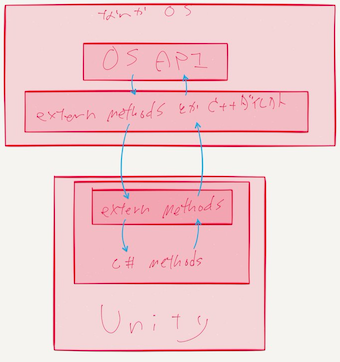 なんか OS
OS API
extern methods とか C++ダイレクト
extern methods
C# methods
Unity